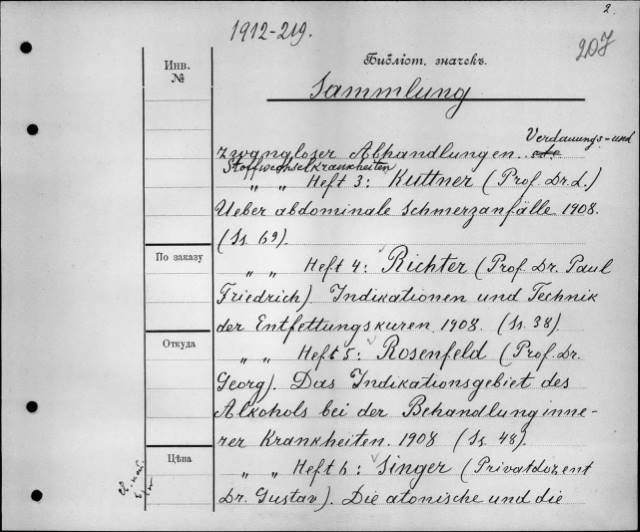 2.
1912-219.
207
Инв.
№
Библіот. значекъ.
Sammlung
zwangloser Abhandlungen Verdauungs-und
Stoffwechselkrankheiten
„ „ Heft 3: Kuttner (Prof. Dr. L.)
Ueber abdominale Schmerzanfälle 1908.
(Ss. 69).
По заказу
„ „ Heft 4: Richter (Prof. Dr. Paul
Friedrich). Indikationen und Technik
der Entfettungskuren. 1908. (Ss. 38).
Откуда
„ „ Heft 5: Rosenfeld (Prof. Dr.
Georg). Das Indikationsgebiet des
Alkohols bei der Behandlung inne-
rer Krankheiten. 1908 (Ss. 48).
Цѣна
„ „ Heft 6: Singer (Privatdozent
Dr. Gustav). Die atonische und die